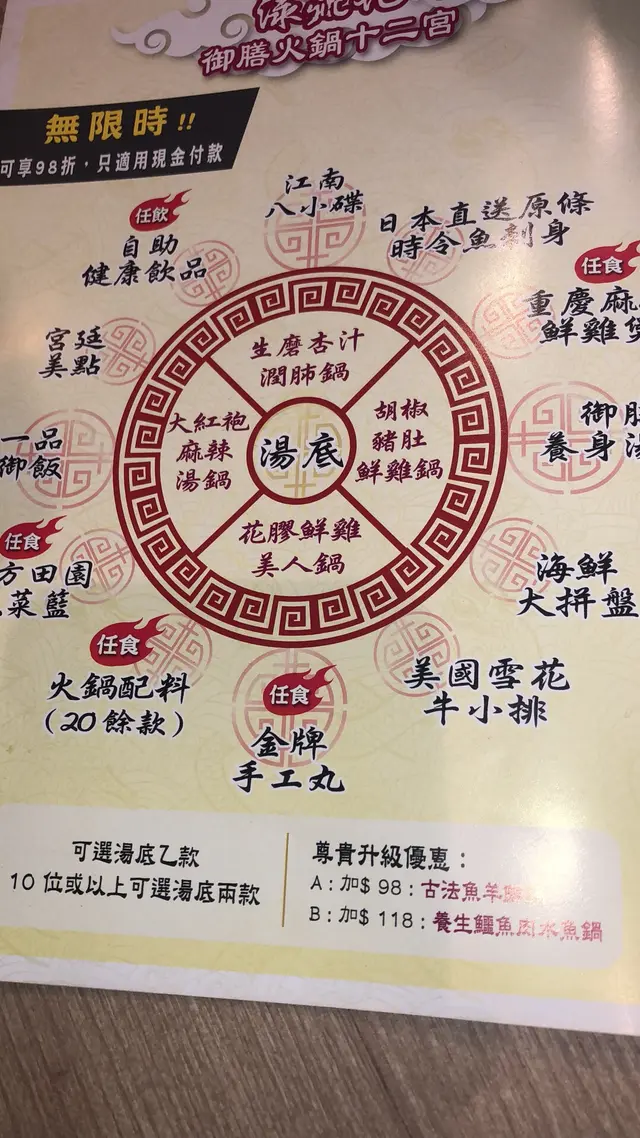 御膳火鍋十二宮
無限時!!
可享98折，只適用現金付款
江南
八小碟
日本直送原條
時令魚刺身
任食
重慶麻
鮮雞煲
御
養身湯
海鮮
大拼盤
美國雪花
牛小排
任食
金牌
手工丸
任食
火鍋配料
(20餘款)
任食
方田園
菜籃
一品
御飯
宮廷
美點
任飲
自助
健康飲品
生磨杏汁
潤肺鍋
胡椒
豬肚
鮮雞鍋
花膠鮮雞
美人鍋
大紅袍
麻辣
湯鍋
湯底
可選湯底乙款
10 位或以上可選湯底兩款
尊貴升級優惠：
A：加$ 98：古法魚羊
B：加$ 118：養生鱷魚肉水魚鍋